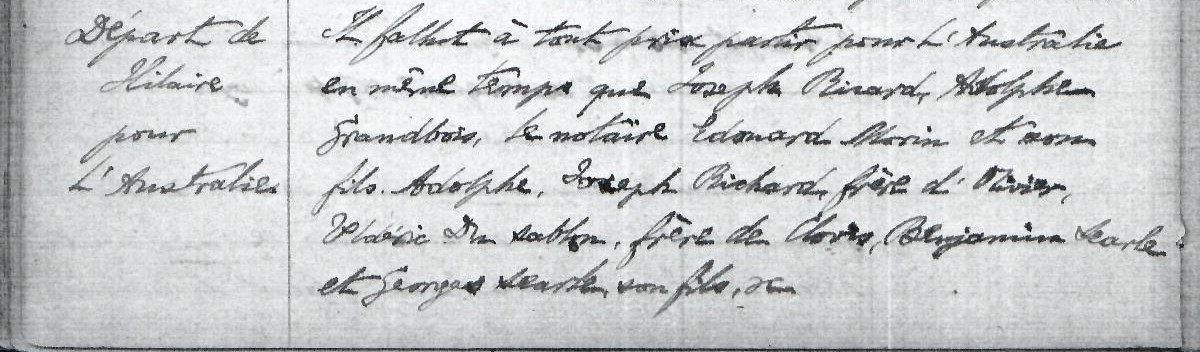 Départ de
Hilaire
pour
L'Australie
Il fallut à tout prix partir pour L'Australie
en même temps que Joseph Ricard, Adolphe
Grandbois, le notaire Edouard Morin et son
fils Adolphe, Joseph Richard, frère d'Olivier,
Du sablon, frère de Clovis, Benjamin Searle
et Georges Searle, son fils,